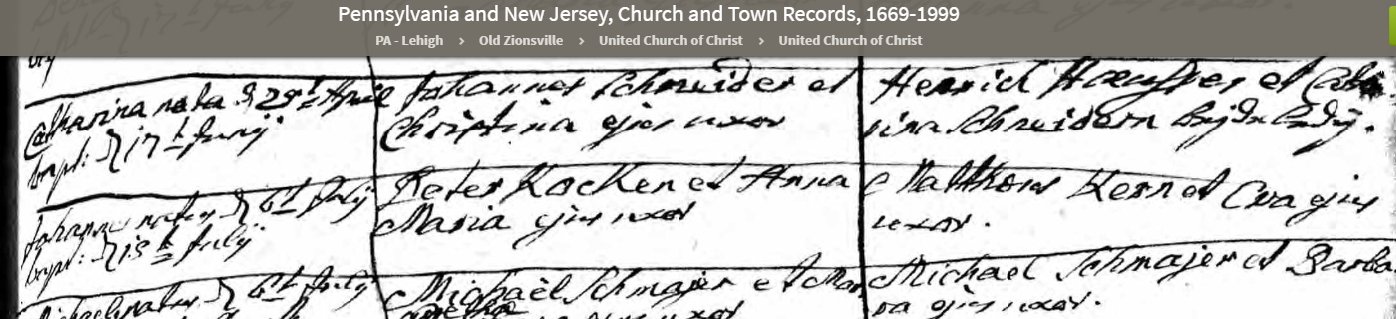 Pennsylvania and New Jersey, Church and Town Records, 1669-1999
PA - Lehigh > Old Zionsville > United Church of Christ > United Church of Christ
Catharina nata d 29t April
bapt: d 17t Junij
Johannes Schneider et
Christina ejus uxor
Henrich et Catha
rina Schneidern
Johannes natus d 6t July
bapt: d 15t July
Peter Kocken et Anna
Maria ejus uxor
Matthous Kern et Eva ejus
uxor.
Michael natus d 6t July
Michaël Schmajer et Mar
uxor
Michael Schmajer et Barba
ra ejus uxor.